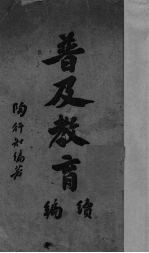 普及教育
續編
陶行知編著